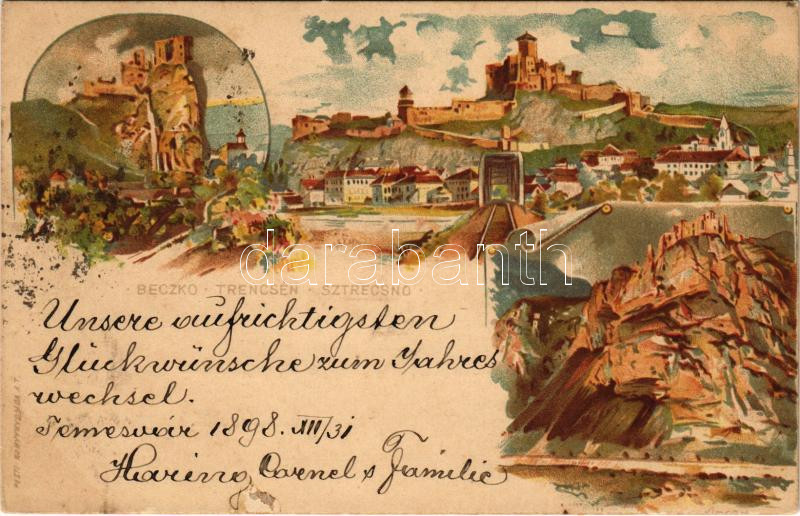 BECZKO · TRENCSÉN · SZTRECSNO
Unsere aufrichtigsten
Glückwünsche zum Jahres
wechsel.
Temesvár 1898. XII/31
Haring Cornel s Familie
darabanth